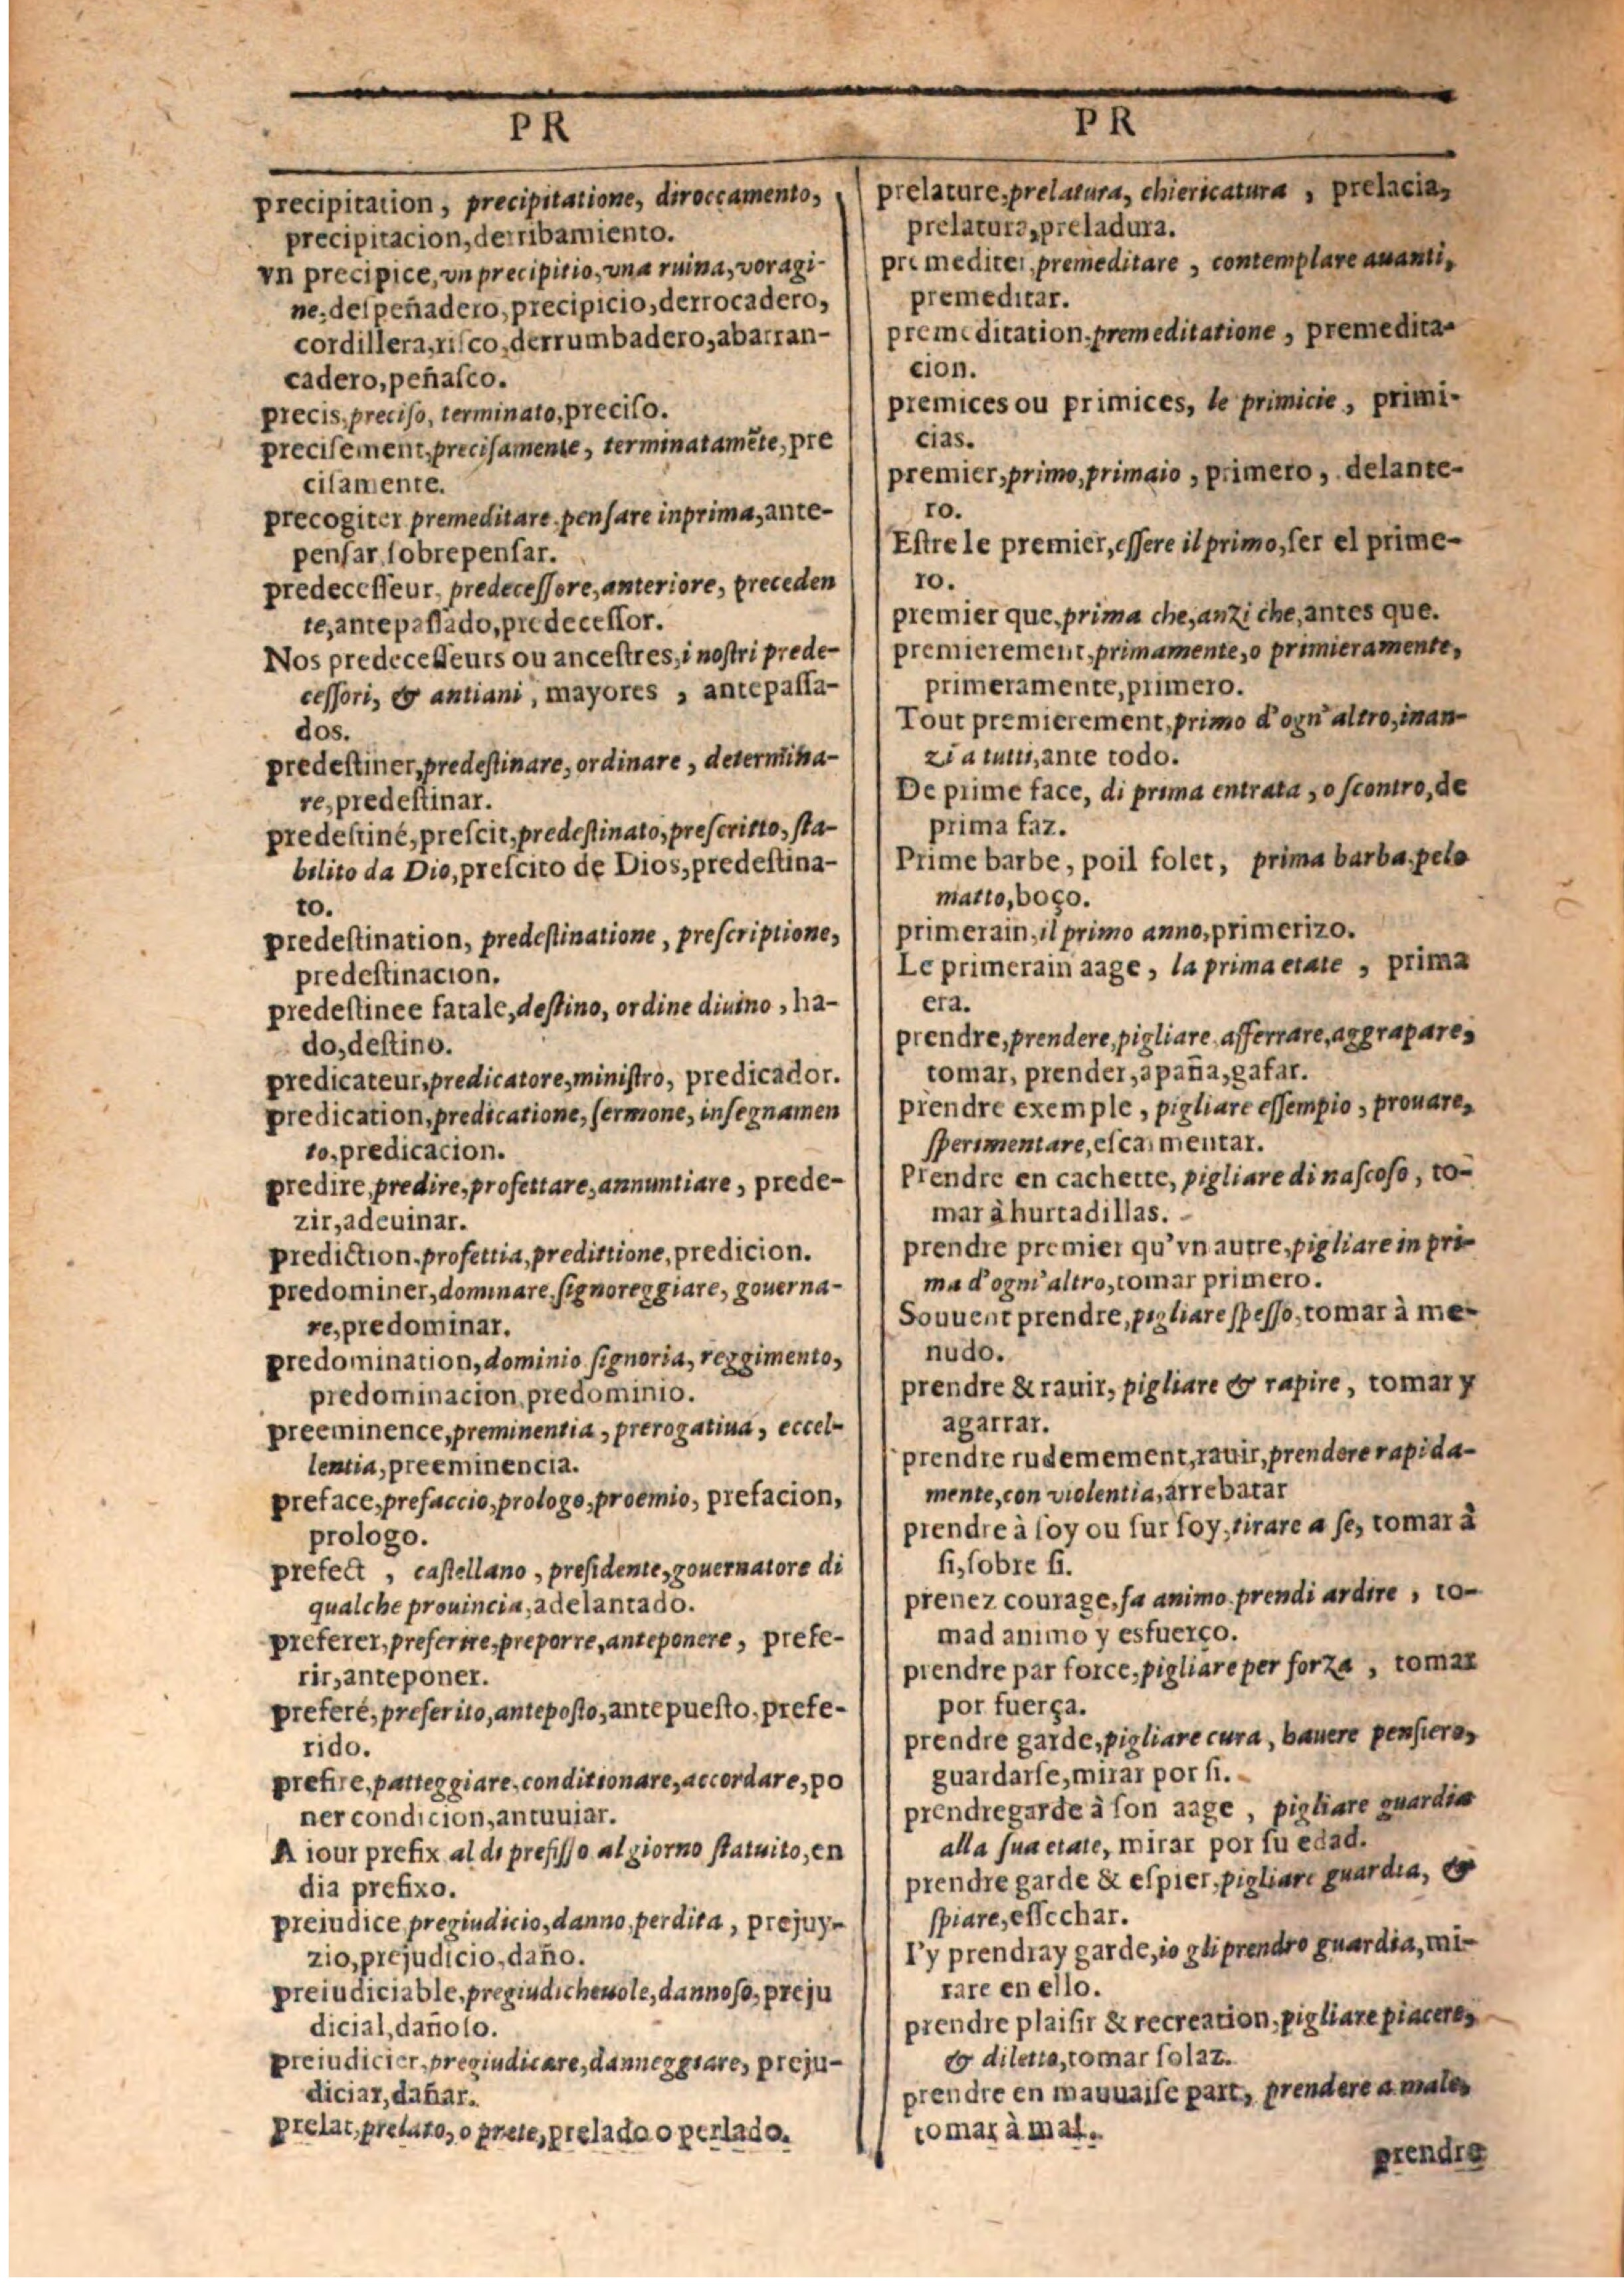 PR
precipitation, precipitatione, diroccamento,
precipitacion, derribamiento.
vn precipice, vn precipitio, vna ruina, voragi-
ne, despeñadero, precipicio, derrocadero,
cordillera, risco, derrumbadero, abarran-
cadero, peñaſco.
precis, preciſo, terminato, preciſo.
preciſement, preciſamente, terminatamẽte, pre
ciſamente.
precogiter premeditare, penſare inprima, ante-
penſar, ſobrepenſar.
predeceſſeur, predeceſſore, anteriore, preceden
te, antepaſſado, predeceſſor.
Nos predeceſſeurs ou anceſtres, i noſtri prede-
ceſſori, & antiani, mayores, antepaſſa-
dos.
predeſtiner, predeſtinare, ordinare, determina-
re, predeſtinar.
predeſtiné, preſcit, predeſtinato, preſcritto, ſta-
bilito da Dio, preſcito de Dios, predeſtina-
to.
predeſtination, predeſtinatione, preſcriptione,
predeſtinacion.
predeſtinee fatale, deſtino, ordine diuino, ha-
do, deſtino.
predicateur, predicatore, miniſtro, predicador.
predication, predicatione, ſermone, inſegnamen
to, predicacion.
predire, predire, profettare, annuntiare, prede-
zir, adeuinar.
prediction, profettia, predittione, predicion.
predominer, dominare, ſignoreggiare, gouerna-
re, predominar.
predomination, dominio ſignoria, reggimento,
predominacion, predominio.
preeminence, preminentia, prerogatiua, eccel-
lentia, preeminencia.
preface, prefaccio, prologo, proemio, prefacion,
prologo.
prefect, caſtellano, preſidente, gouernatore di
qualche prouincia, adelantado.
preferer, preferire, preporre, anteponere, prefe-
rir, anteponer.
preferé, preferito, anteposto, antepueſto, prefe-
rido.
prefire, patteggiare, conditionare, accordare, po
ner condicion, antuuiar.
A iour prefix al di prefiſſo al giorno ſtatuito, en
dia prefixo.
preiudice pregiudicio, danno, perdita, prejuy-
zio, prejudicio, daño.
preiudiciable, pregiudicheuole, dannoſo, preju
dicial, dañoſo.
preiudicier, pregiudicare, danneggiare, preju-
diciar, dañar.
prelat, prelato, o prete, prelado o perlado.
PR
prelature, prelatura, chiericatura, prelacia,
prelatura, preladura.
premediter, premeditare, contemplare auanti,
premeditar.
premeditation, premeditatione, premedita-
cion.
premices ou primices, le primicie, primi-
cias.
premier, primo, primaio, primero, delante-
ro.
Eſtre le premier, eſſere il primo, ſer el prime-
ro.
premier que, prima che, anzi che, antes que.
premierement, primamente, o primieramente,
primeramente, primero.
Tout premierement, primo d'ogn' altro, inan-
zi a tutti, ante todo.
De prime face, di prima entrata, o ſcontro, de
prima faz.
Prime barbe, poil folet, prima barba, pelo
matto, boço.
primerain, il primo anno, primerizo.
Le primerain aage, la prima etate, prima
era.
prendre, prendere, pigliare, afferrare, aggrapare,
tomar, prender, apaña, gafar.
prendre exemple, pigliare eſſempio, prouare,
ſperimentare, eſcarmentar.
Prendre en cachette, pigliare di naſcoſo, to-
mar à hurtadillas.
prendre premier qu'vn autre, pigliare in pri-
ma d'ogni' altro, tomar primero.
Souuent prendre, pigliare ſpeſſo, tomar à me-
nudo.
prendre & rauir, pigliare & rapire, tomar y
agarrar.
prendre rudemement, rauir, prendere rapida-
mente, con violentia, arrebatar
prendre à ſoy ou ſur ſoy, tirare a ſe, tomar à
ſi, ſobre ſi.
prenez courage, fa animo prendi ardire, to-
mad animo y esfuerço.
prendre par force, pigliare per forza, tomar
por fuerça.
prendre garde, pigliare cura, hauere penſiero,
guardarſe, mirar por ſi.
prendre garde à ſon aage, pigliare guardia
alla ſua etate, mirar por ſu edad.
prendre garde & eſpier, pigliare guardia, &
ſpiare, eſſechar.
I'y prendray garde, io gli prendro guardia, mi-
rare en ello.
prendre plaiſir & recreation, pigliare piacere,
& diletto, tomar ſolaz.
prendre en mauuaiſe part, prendere a male,
tomar à mal.
prendre